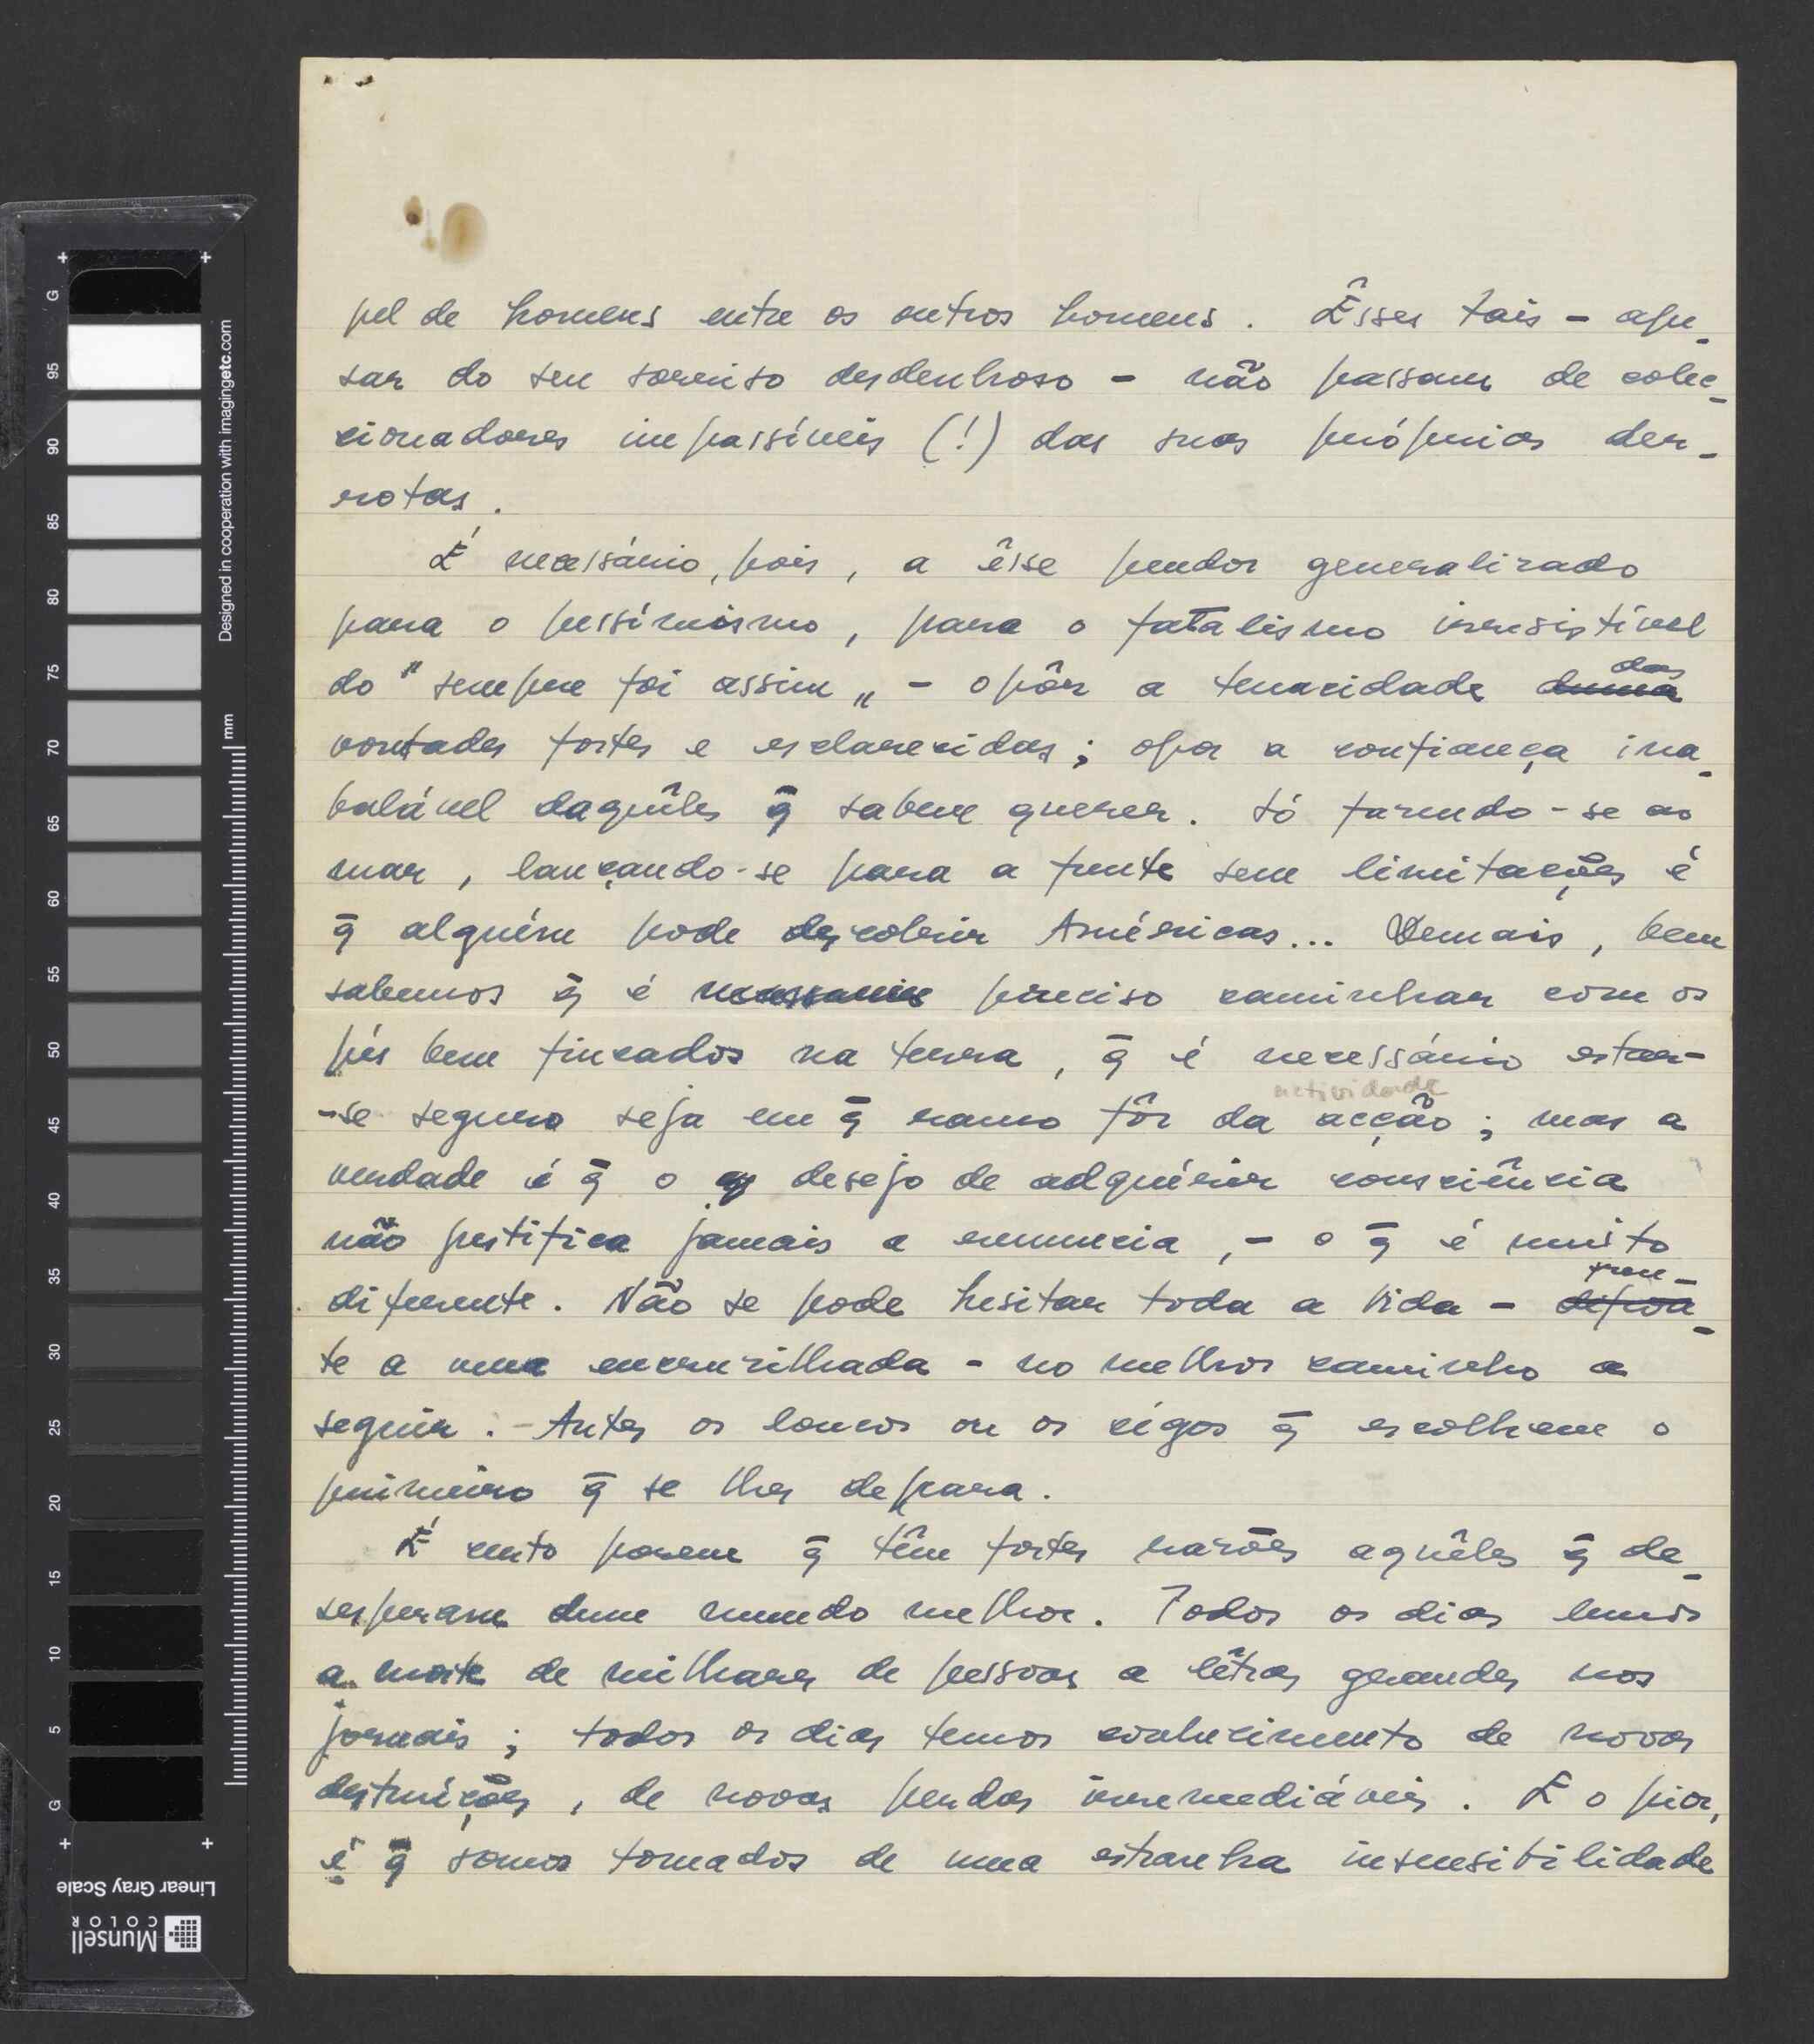 pel de homens entre os outros homens. Êsses tais - ape-
sar do seu sorriso desdenhoso - não passam de colec-
cionadores impassíveis (!) das suas próprias der-
rotas.
É necessário, pois, a êsse pendor generalizado
para o pessimismo, para o fatalismo irresistível
das
do "sempre foi assim„ - opôr a tenacidade duma
vontades fortes e esclarecidas; opor a confiança ina-
balável daquêles q̄ sabem querer. Só fazendo-se ao
mar, lançando-se para a frente sem limitações é
q̄ alguém pode descobrir Américas... Demais, bem
sabemos q̄ é necessario preciso caminhar com os
pés bem fincados na terra, q̄ é necessário estar-
actividade
-se seguro seja em q̄ ramo fôr da acção; mas a
verdade é q̄ o desejo de adquirir consciência
não justifica jamais a renuncia, - o q̄ é muito
fren-
diferente. Não se pode hesitar toda a vida - defron-
te a uma encruzilhada - no melhor caminho a
seguir. - Antes os loucos ou os cégos q̄ escolhem o
primeiro q̄ se lhes depara.
É certo porem q̄ têm fortes razões aquêles q̄ de-
sesperam dum mundo melhor. Todos os dias lemos
a morte de milhares de pessoas a lêtras grandes nos
jornais; todos os dias temos conhecimento de novas
destruições, de novas perdas irremediáveis. E o pior,
é q̄ somos tomados de uma estranha insensibilidade
Designed in cooperation with imagingetc.com
mm
G
95
90
85
80
75
70
65
60
55
50
45
40
35
30
25
20
15
10
5
G
Linear Gray Scale
Munsell
COLOR